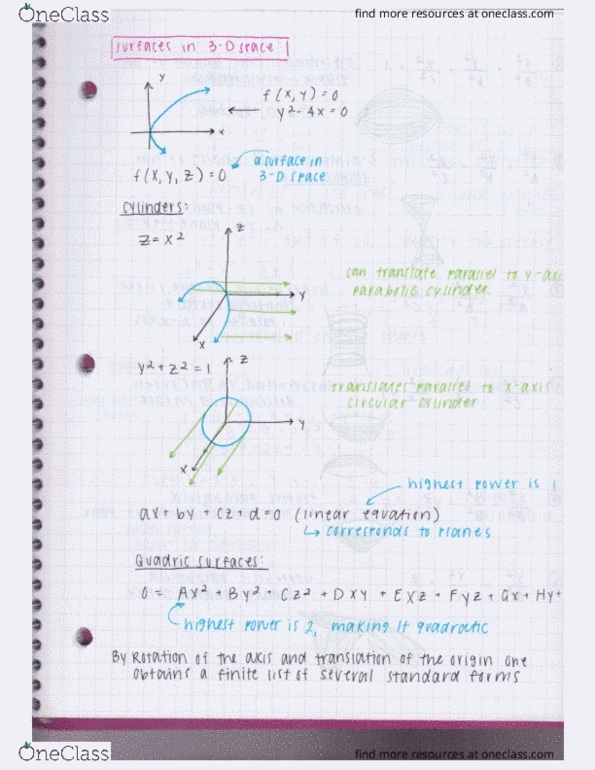 OneClass
find more resources at oneclass.com
surfaces in 3-D space
y
f(x,y)=0
y²-4x=0
x
a surface in
3-D space
f(x,y,z)=0
cylinders:
z=x²
z
can translate parallel to y-axis
y
parabolic cylinder
x
y²+z²=1
z
translates parallel to x-axis
circular cylinder
y
x
highest power is 1
ax+by+cz+d=0 (linear equation)
↳ corresponds to planes
Quadric surfaces:
0= Ax²+By²+Cz²+Dxy+Exz+Fyz+Gx+Hy+
highest power is 2, making it quadratic
By Rotation of the axis and translation of the origin one
obtains a finite list of several standard forms
OneClass
find more resources at oneclass.com